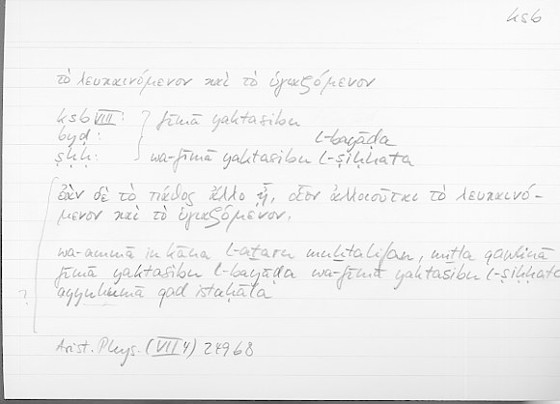 ksb
τὸ λευκαινόμενον καὶ τὸ ὑγιαζόμενον
ksb VIII: fīmā yaktasibu
byḍ: l-bayāḍa
ṣḥḥ: wa-fīmā yaktasibu l-ṣiḥḥata
ἐὰν δὲ τὸ πάθος ἄλλο ᾖ, οἷον ἀλλοιοῦται τὸ λευκαινό-
μενον καὶ τὸ ὑγιαζόμενον.
wa-ammā in kāna l-aṯaru muḫtalifan, miṯla qawlinā
fīmā yaktasibu l-bayāḍa wa-fīmā yaktasibu l-ṣiḥḥata
? ayyuhumā qad istaḥāla
Arist. Phys. (VII 4) 249b8